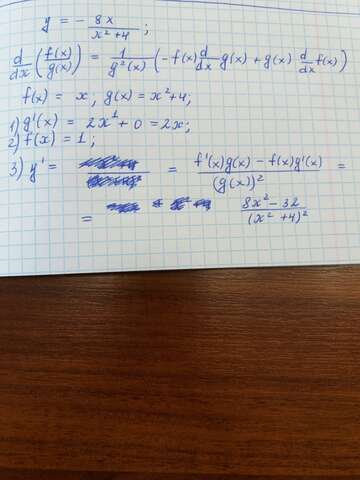 y = - 8x / x²+4 ;
d/dx (f(x)/g(x)) = 1/g²(x) (-f(x) d/dx g(x) + g(x) d/dx f(x))
f(x) = x; g(x) = x²+4;
1) g'(x) = 2x¹ + 0 = 2x;
2) f(x) = 1;
3) y' = = f'(x)g(x) - f(x)g'(x) / (g(x))² =
= 8x² - 32 / (x² + 4)²